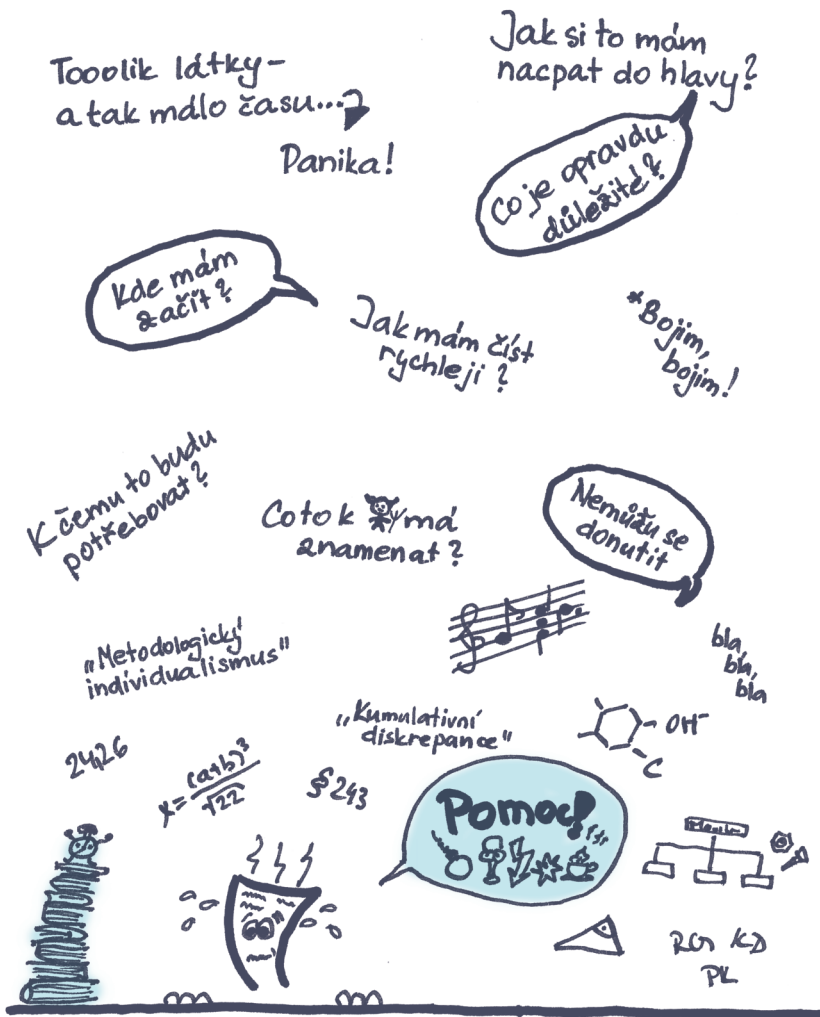 Tooolik látky-
a tak málo času...
Panika!
Jak si to mám
nacpat do hlavy?
Co je opravdu
důležité?
Kde mám
začít?
Jak mám číst
rychleji?
*Bojim,
bojim!
K čemu to budu
potřebovat?
Co to k má
znamenat?
Nemůžu se
donutit
„Metodologický
individualismus"
bla,
bla,
bla
„Kumulativní
diskrepance"
OH-
C
24,26
x=(a+b)³/√22
§ 243
Pomoc!